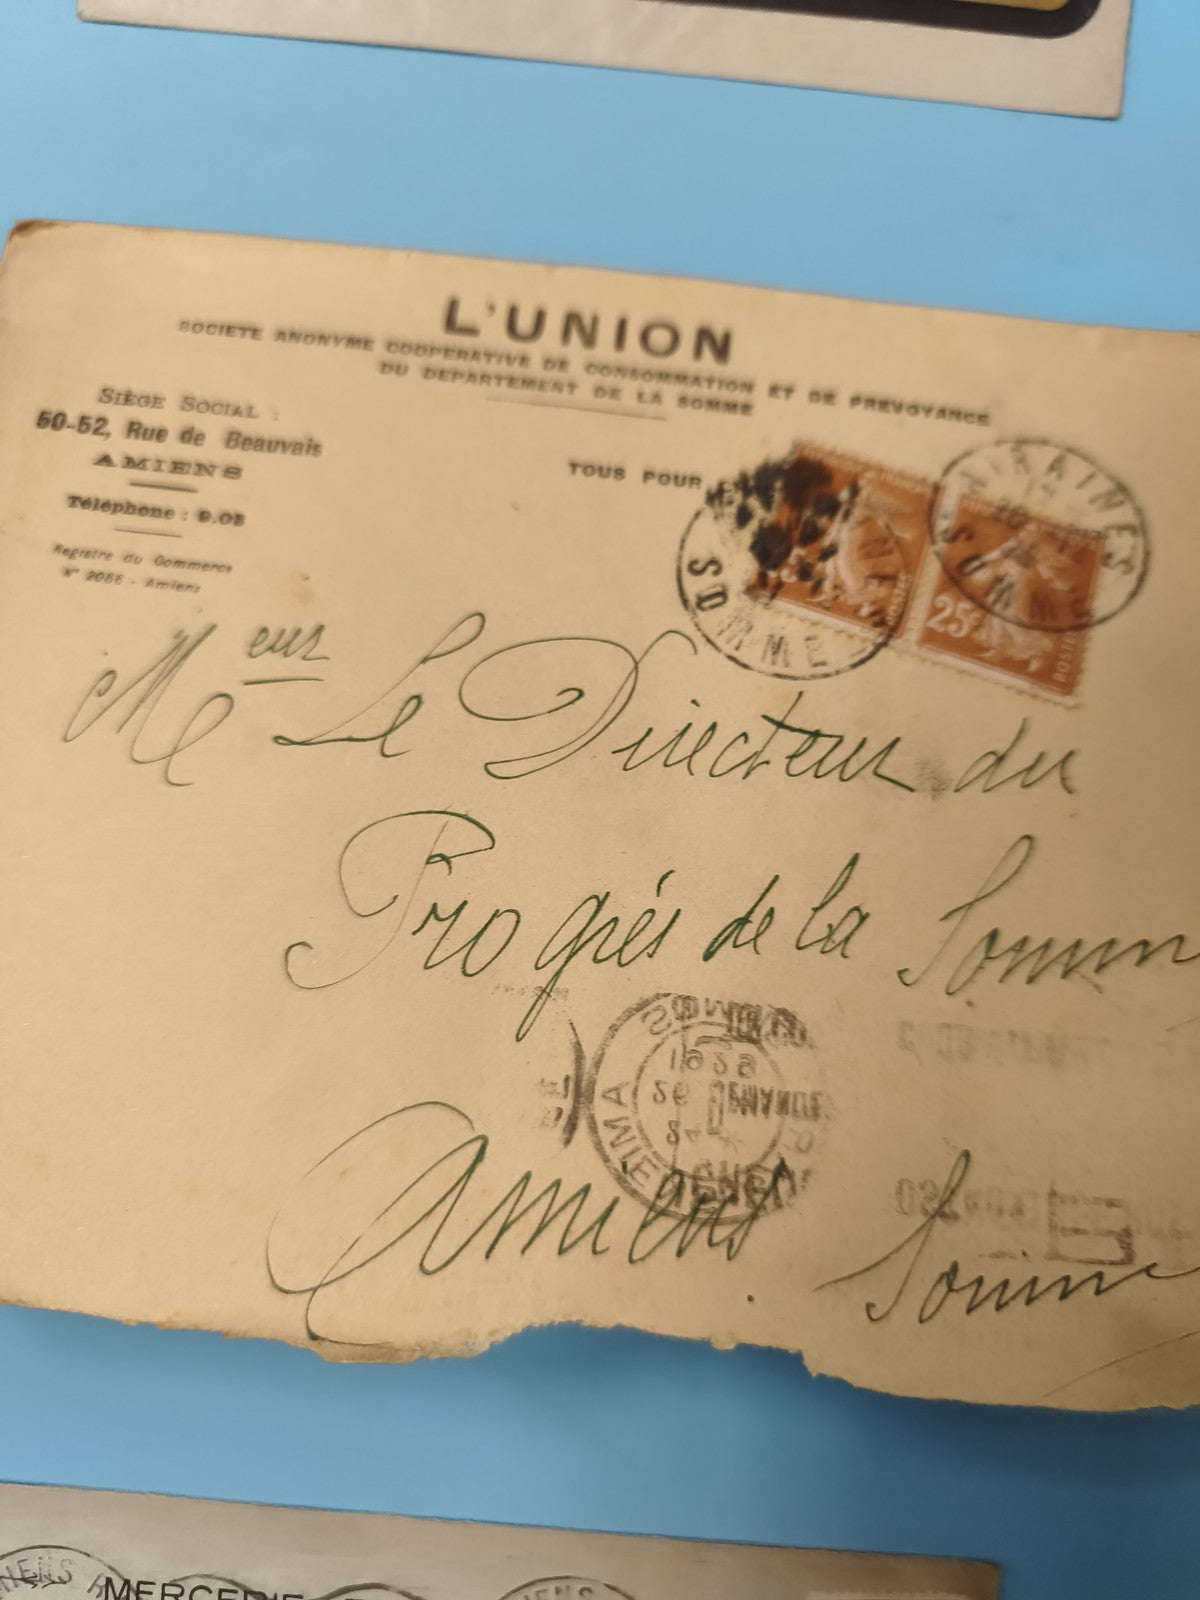 L'UNION
SOCIETE ANONYME COOPERATIVE DE CONSOMMATION ET DE PREVOYANCE
DU DEPARTEMENT DE LA SOMME
SIÈGE SOCIAL :
50-52, Rue de Beauvais
AMIENS
Téléphone : 9.03
Registre du Commerce
N° 2086 - Amiens
TOUS POUR
AIRAINES
SOMME
SOMME
25
POSTES
Meur Le Directeur du
Progrés de la Somm
Amiens Somme
1929
MERCERIE